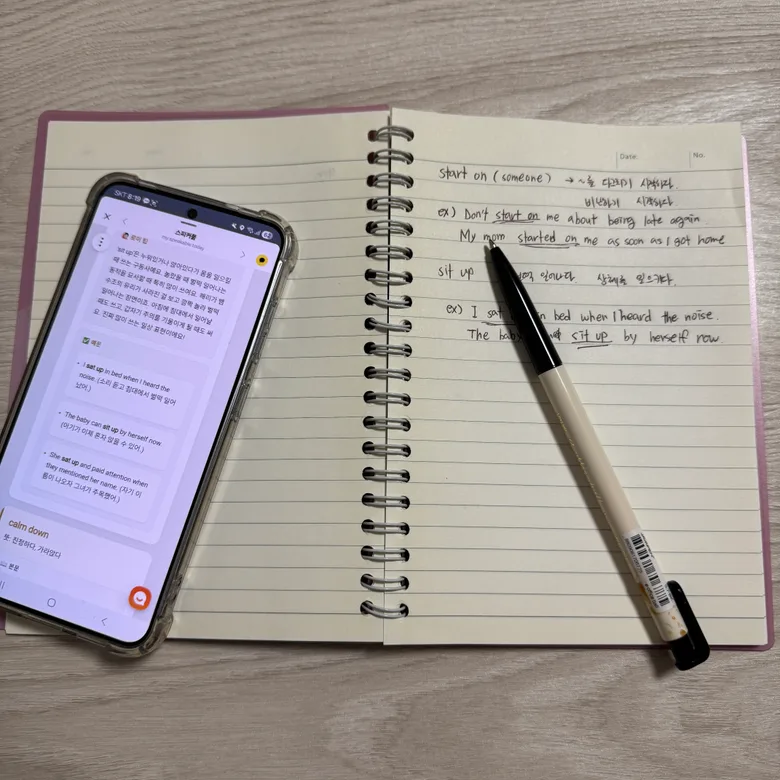 SKT 8:19
스피커블
my.speakable.today
'sit up'은 누워있거나 앉아있다가 몸을 일으킬
때 쓰는 구동사예요. 놀랐을 때 벌떡 일어나는
동작을 묘사할 때 특히 많이 쓰여요. 해리가 뱀
수조의 유리가 사라진 걸 보고 깜짝 놀라 벌떡
일어나는 장면이죠. 아침에 침대에서 일어날
때도 쓰고, 갑자기 주의를 기울이게 될 때도 써
요. 진짜 많이 쓰는 일상 표현이에요!
예문
I sat up in bed when I heard the
noise. (소리 듣고 침대에서 벌떡 일어
났어.)
The baby can sit up by herself now.
(아기가 이제 혼자 앉을 수 있어.)
She sat up and paid attention when
they mentioned her name. (자기 이
름이 나오자 그녀가 주목했어.)
calm down
뜻: 진정하다, 가라앉다
본문
Date.
No.
start on (someone) → ~를 다그치기 시작하다.
비난하기 시작하다
ex) Don't start on me about being late again
My mom started on me as soon as I got home
sit up 일어나다. 상체를 일으키다.
ex) I sat in bed when I heard the noise.
The sit up by herself now.